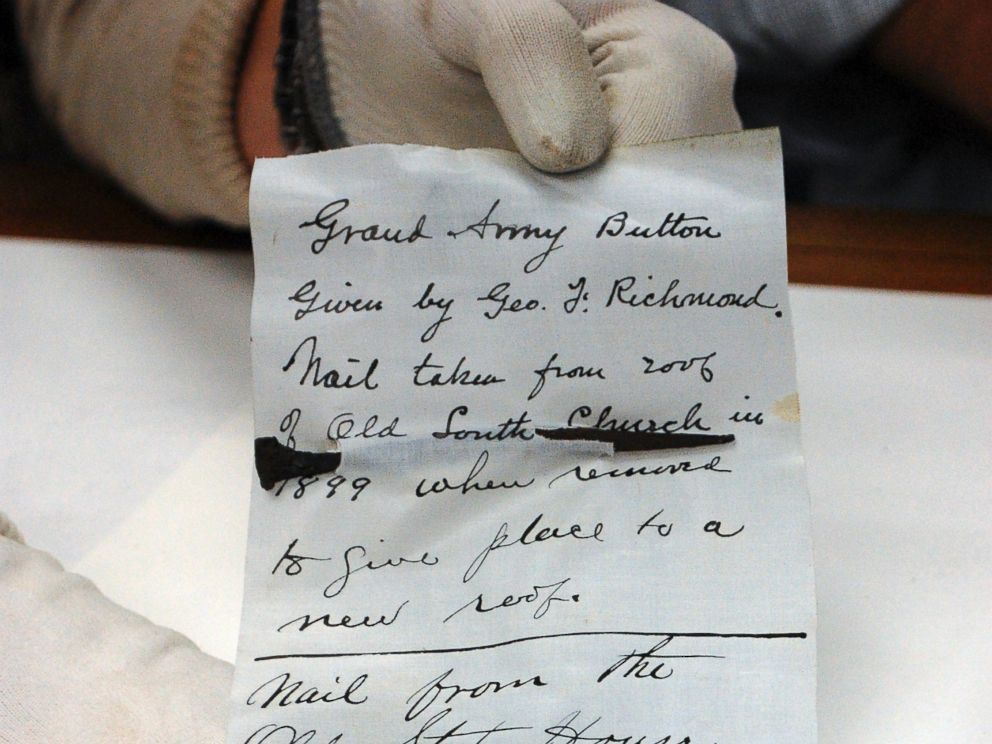 Grand Army Button
Given by Geo. F. Richmond.
Nail taken from roof
of Old South Church in
1899 when removed
to give place to a
new roof.
Nail from the
Old State House